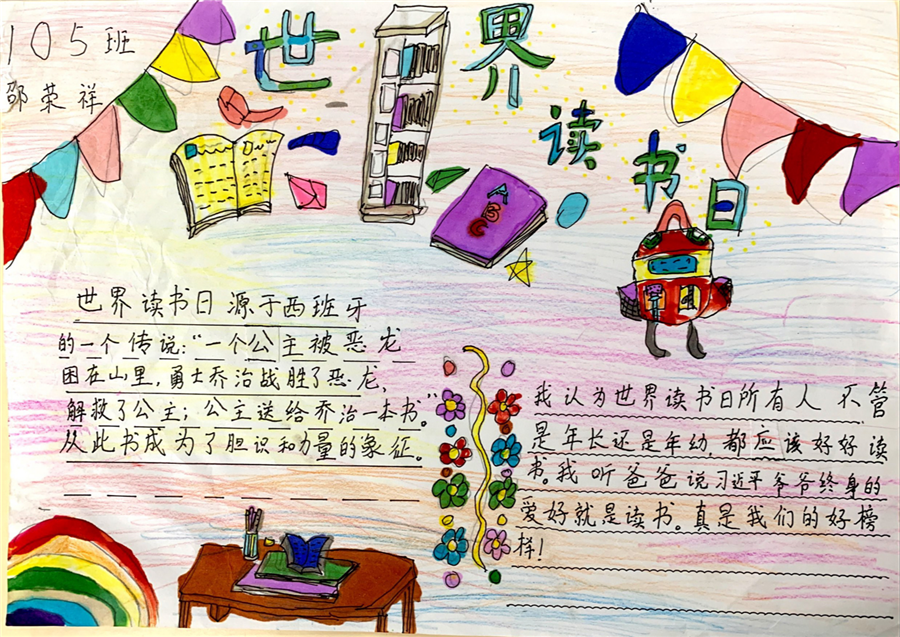 105班
邵荣祥
世界读书日
ABC
世界读书日源于西班牙
的一个传说：“一个公主被恶龙
困在山里，勇士乔治战胜了恶龙，
解救了公主；公主送给乔治一本书。”
从此书成为了胆识和力量的象征。
我认为世界读书日所有人不管
是年长还是年幼，都应该好好读
书。我听爸爸说习近平爷爷终身的
爱好就是读书。真是我们的好榜
样！